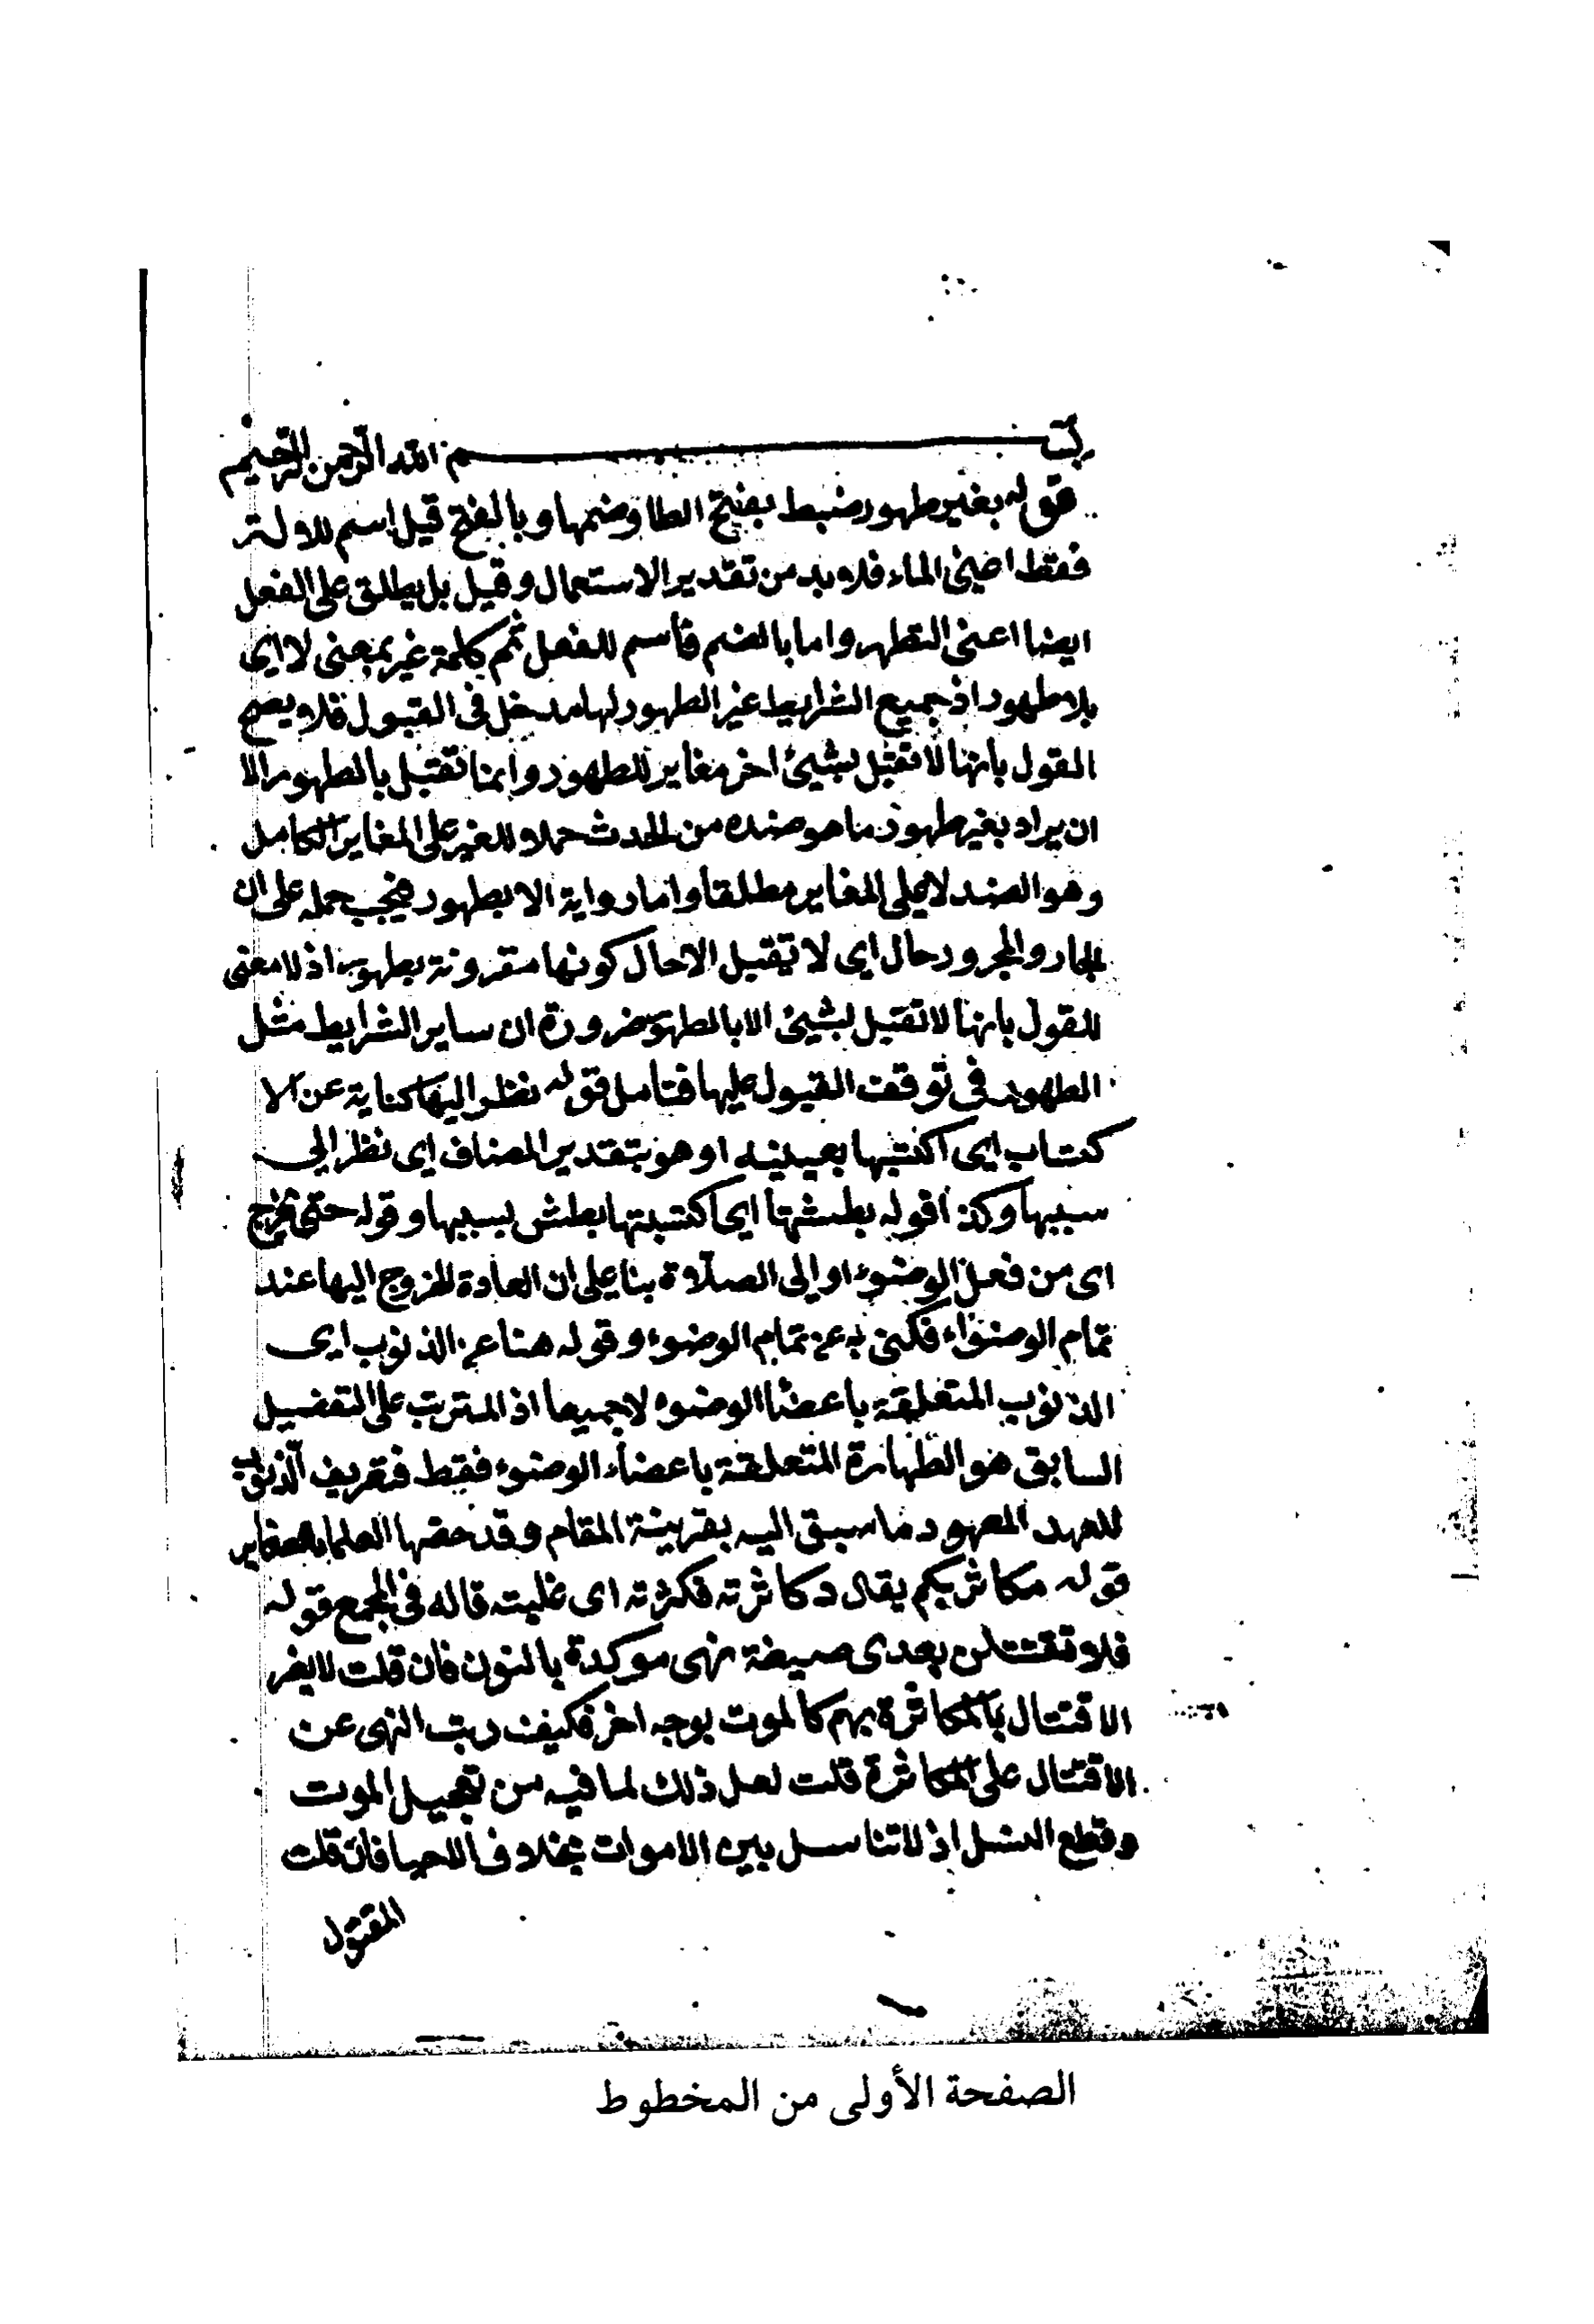 بسم الله الرحمن الرحيم
قوله بغير طهور ضبط بفتح الطا وضمها وبالفتح قيل اسم للالة
فقط اعني الماء فلا بد من تقدير الاستعمال وقيل بل يطلق على الفعل
ايضا اعني التطهر واما بالضم فاسم للفعل ثم كلمة غير بمعنى لا اي
بلا طهور اذ جميع الشرايط غير الطهور لها مدخل في القبول فلا يصح
القول بانها لا تقبل بشيئ اخر مغاير للطهور وانما تقبل بالطهور الا
ان يراد بغير طهور ما هو ضده من الحدث حملا للغير على المغاير الكامل
وهو الضد لا على المغاير مطلقا واما رواية الا بطهور فيجب حمله على ان
الجار والمجرور حال اي لا تقبل الا حال كونها مقرونة بطهور اذ لا معنى
للقول بانها لا تقبل بشيئ الا بالطهور ضرورة ان ساير الشرايط مثل
الطهور في توقف القبول عليها فتامل قوله نظر اليها كناية عن الا
كتساب اي اكتسبها بعينيه او هو بتقدير المضاف اي نظر الى
سببها وكذا قوله بطشتها اي اكتسبتها بطش بسببها وقوله حتى يخرج
اي من فعل الوضوء او الى الصلاة بنا على ان العادة الخروج اليها عند
تمام الوضوء فكنى به عن تمام الوضوء وقوله هنا عن الذنوب اي
الذنوب المتعلقة باعضا الوضوء لا جميعا اذ المترتب على التفضيل
السابق هو الطهارة المتعلقة باعضاء الوضوء فقط فتعريف الذنوب
للعهد المعهود ما سبق اليه بقرينة المقام وقد خصها العلماء بالصغاير
قوله مكاثر بكم يقال كاثرته فكثرته اى غلبته قاله في المجمع قوله
فلا تقتتلن بعدى صيغة نهى موكدة بالنون فان قلت لا يضر
الاقتتال بالمكاثرة بهم كالموت بوجه اخر فكيف رتب النهى عن
الاقتتال على المكاثرة قلت لعل ذلك لما فيه من تعجيل الموت
وقطع النسل اذ لا تناسل بين الاموات بخلاف الاحيا فان قلت
المقتول
الصفحة الأولى من المخطوط